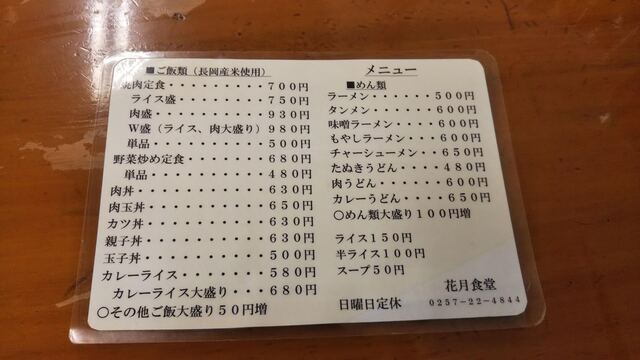 メニュー
■ご飯類（長岡産米使用）
焼肉定食・・・・・・・・・７００円
ライス盛・・・・・・・・７５０円
肉盛・・・・・・・・・・９３０円
Ｗ盛（ライス、肉大盛り）９８０円
単品・・・・・・・・・・５００円
野菜炒め定食・・・・・・・６８０円
単品・・・・・・・・・・４８０円
肉丼・・・・・・・・・・・６３０円
肉玉丼・・・・・・・・・・６５０円
カツ丼・・・・・・・・・・６３０円
親子丼・・・・・・・・・・６３０円
玉子丼・・・・・・・・・・５００円
カレーライス・・・・・・・５８０円
カレーライス大盛り・・・６８０円
○その他ご飯大盛り５０円増
■めん類
ラーメン・・・・・・５００円
タンメン・・・・・・６００円
味噌ラーメン・・・・６００円
もやしラーメン・・・６００円
チャーシューメン・・６５０円
たぬきうどん・・・・４８０円
肉うどん・・・・・・６００円
カレーうどん・・・・６５０円
○めん類大盛り１００円増
ライス１５０円
半ライス１００円
スープ５０円
花月食堂
日曜日定休　０２５７－２２－４８４４